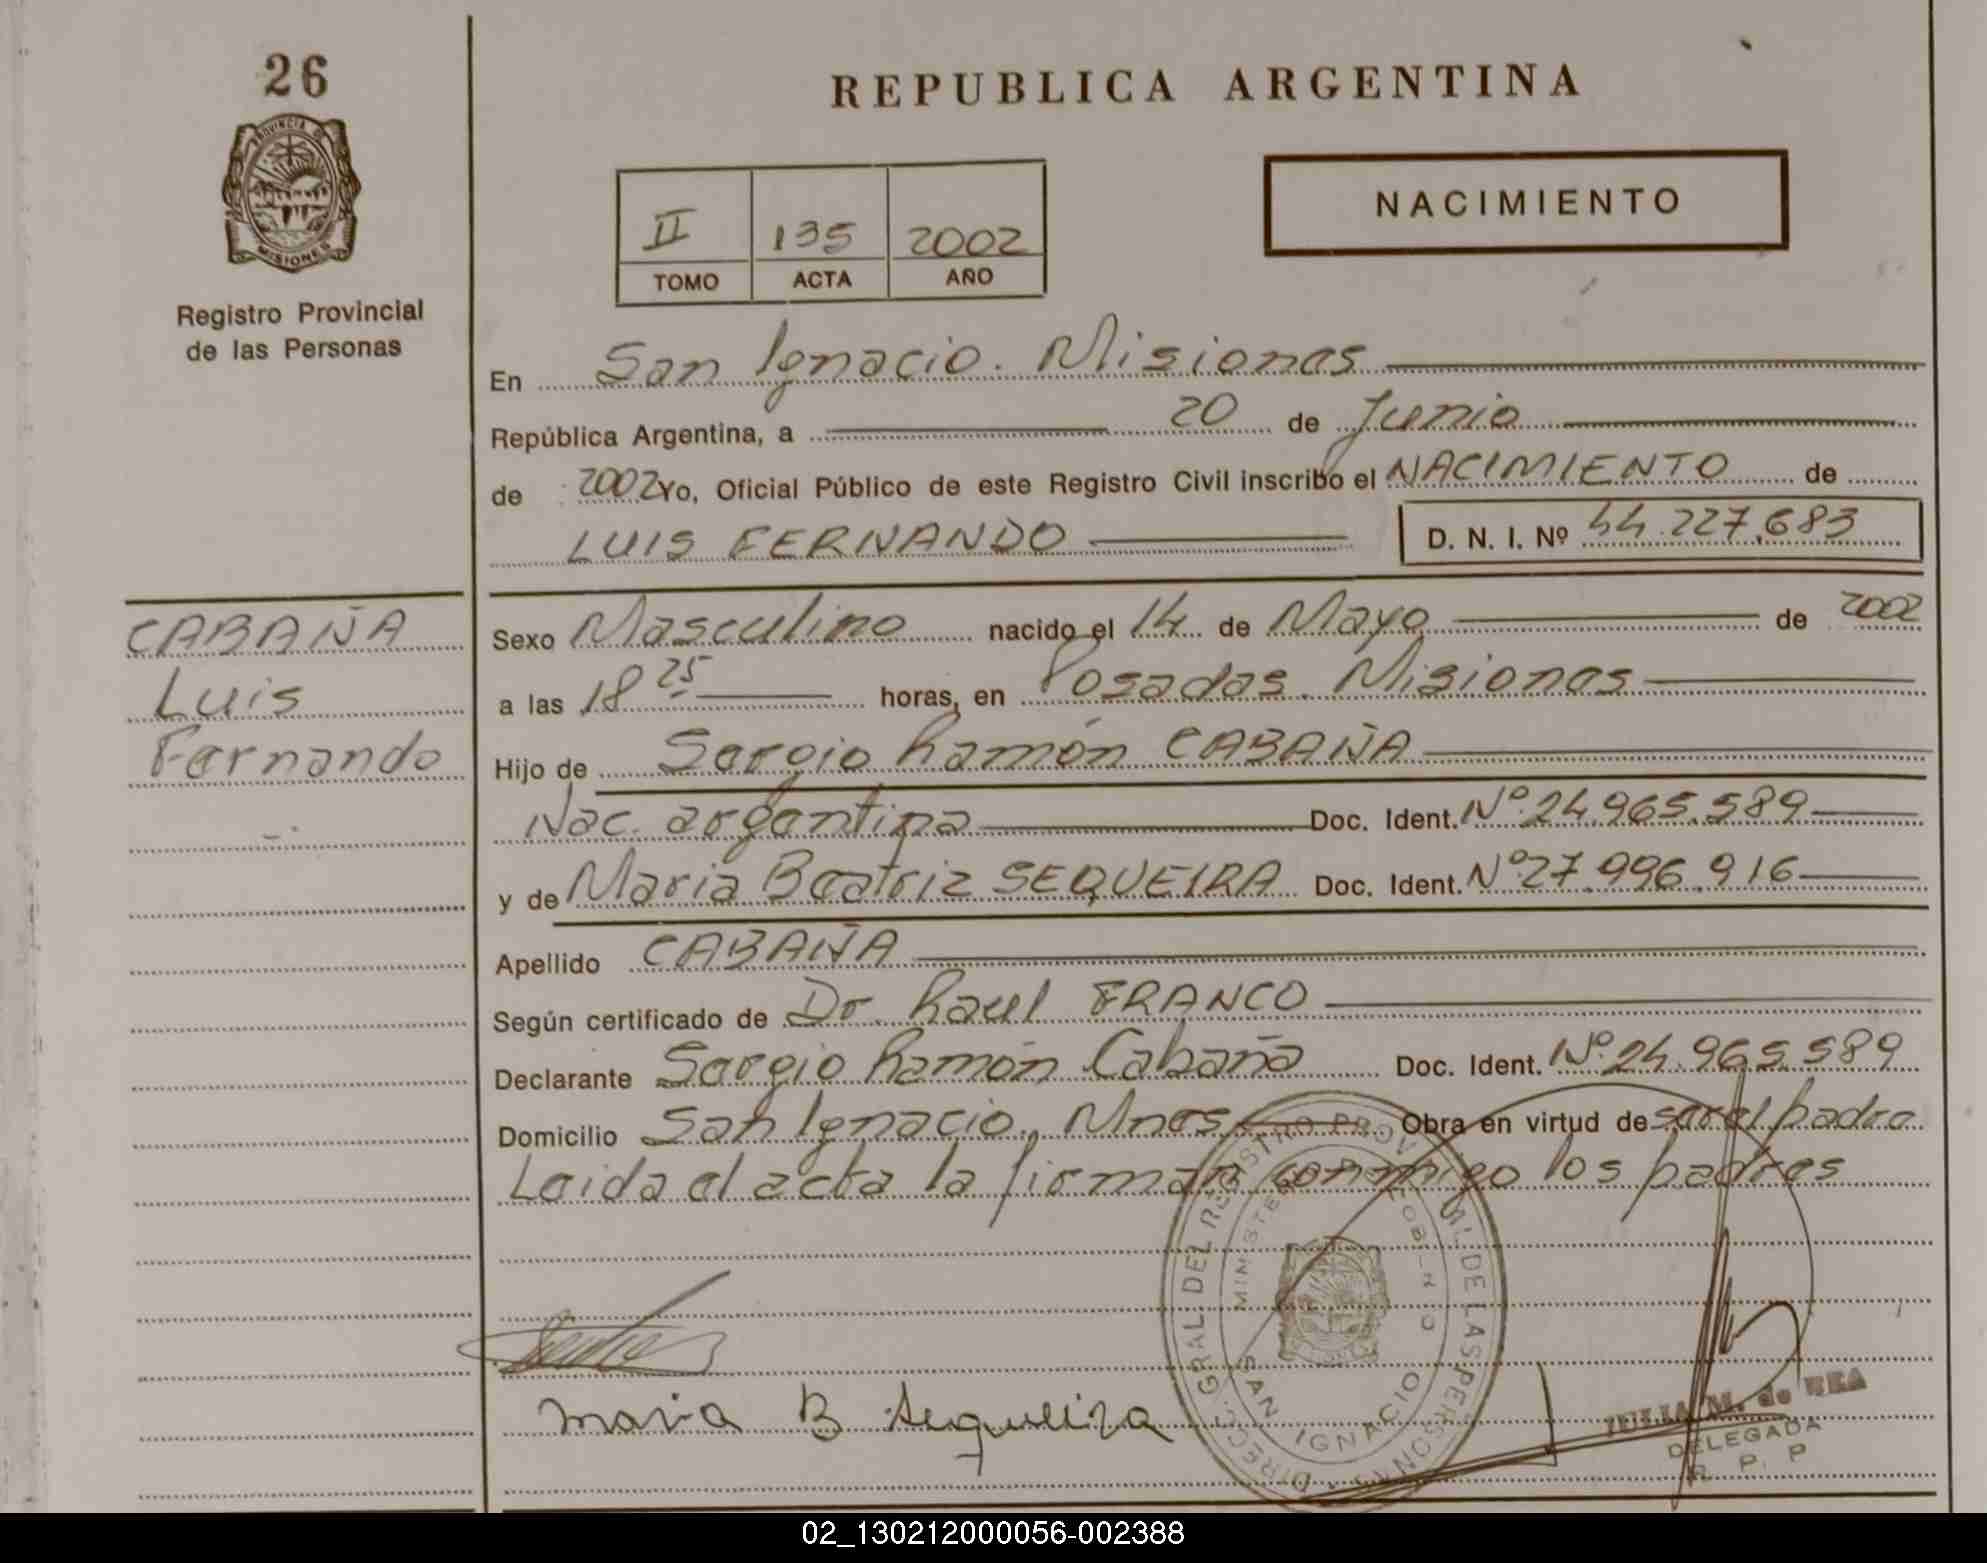 26
REPUBLICA ARGENTINA
PROVINCIA DE
MISIONES
NACIMIENTO
II 135 2002
TOMO ACTA AÑO
Registro Provincial
de las Personas
En San Ignacio. Misiones
República Argentina, a 20 de Junio
de 2002 Yo, Oficial Público de este Registro Civil inscribo el NACIMIENTO de
LUIS FERNANDO D. N. I. Nº 44.227.683
CABAÑA
Luis
Fernando
Sexo Masculino nacido el 14 de Mayo de 2002
a las 18 25 horas, en Posadas. Misiones
Hijo de Sergio Ramón CABAÑA
Nac. argentina Doc. Ident. Nº 24.965.589
y de Maria Beatriz SEQUEIRA Doc. Ident. Nº 27.996.916
Apellido CABAÑA
Según certificado de Dr. Raul FRANCO
Declarante Sergio Ramón Cabaña Doc. Ident. Nº 24.965.589
Domicilio San Ignacio. Mnes Obra en virtud de ser el padre
Leida el acta la firman conmigo los padres
DIRECC. GRAL DEL REGISTRO PROVINCIAL DE LAS PERSONAS
SAN IGNACIO
maria B Sequeira
JULIA M. de REA
DELEGADA
R. P. P
02_130212000056-002388